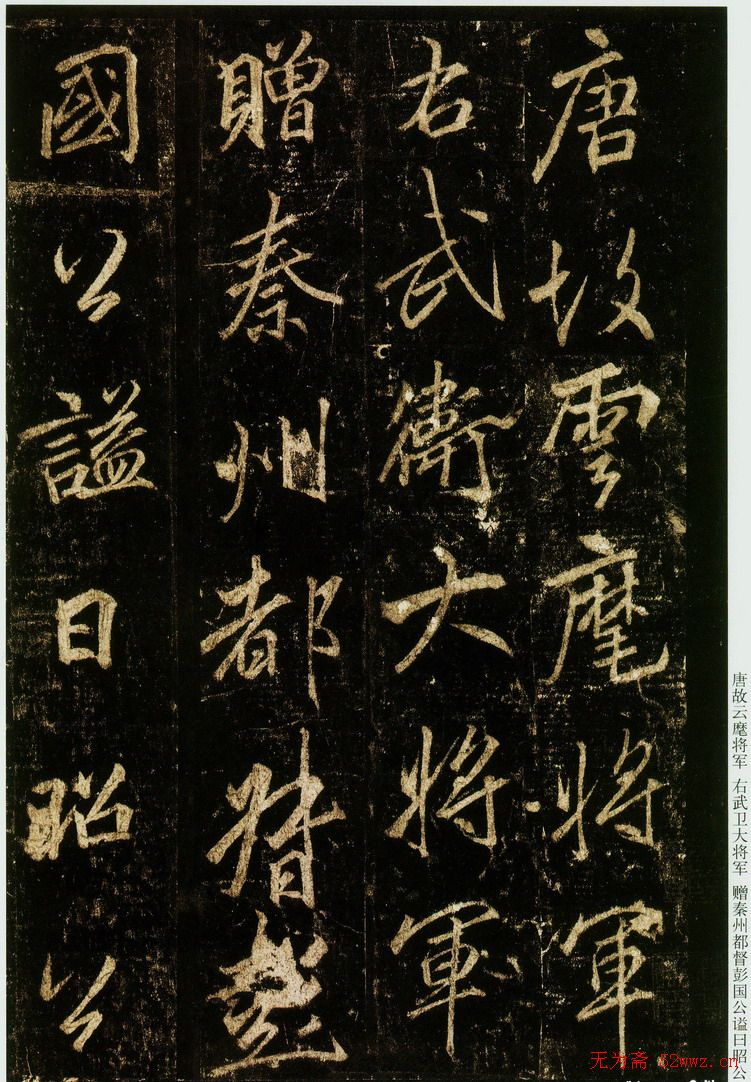 唐故雲麾将軍
右武衛大将軍
贈秦州都督彭
國公謚曰昭公
唐故云麾将军 右武卫大将军 赠秦州都督彭国公谥曰昭公
无为斋 52wwz.cn